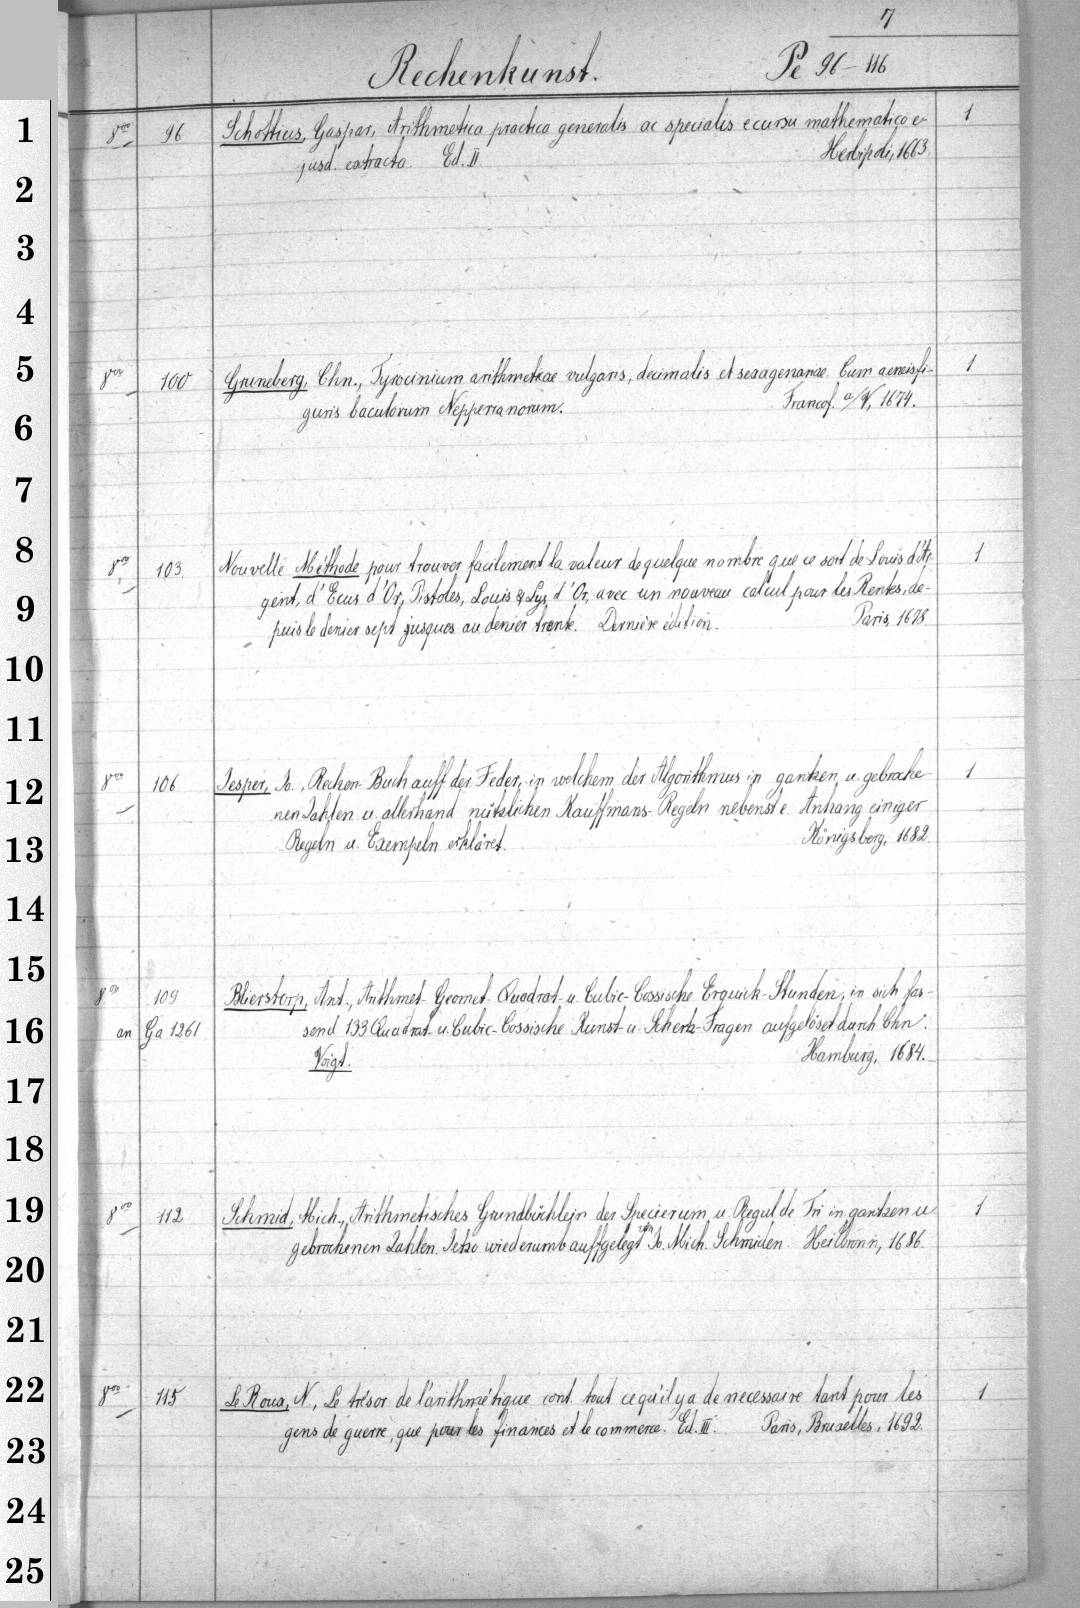 7
Rechenkunst. Pe 96-116
1 8vo 96 Schottius, Gaspar, Arithmetica practica generalis ac specialis e cursu mathematico e- 1
jusd. extracta. Ed. II Herbipoli, 1663.
2
3
4
5 8vo 100 Gruneberg, Chn., Tyrocinium arithmeticae vulgaris, decimalis et sexagenariae. Cum aeneis fi- 1
guris baculorum Nepperianorum. Francof. a/V, 1674.
6
7
8 8vo 103. Nouvelle Méthode pour trouver facilement la valeur de quelque nombre que ce soit de Louis d'Ar- 1
9 gent, d'Ecus d'Or, Pistoles, Louis & Lys d'Or, avec un nouveau calcul pour les Rentes, de-
puis le denier sept jusques au denier trente. Dernière édition. Paris, 1678
10
11
12 8vo 106 Jesper, Jo., Rechen-Buch auff der Feder, in welchem der Algorithmus in gantzen u. gebroche 1
nen Zahlen u. allerhand nützlichen Kauffmans-Regeln nebenst e. Anhang einiger
13 Regeln u. Exempeln erkläret. Königsberg, 1682.
14
15 8vo 109 Blierstorp, Ant., Arithmet- Geomet- Quadrat- u. Cubic-Cossische Erquick-Stunden, in sich fas-
16 an Ga 1261 send 133 Quadrat- u. Cubic-Cossische Kunst- u. Schertz-Fragen aufgelöset durch Chn.
Voigt. Hamburg, 1684.
17
18
19 8vo 112 Schmid, Mich., Arithmetisches Grundbüchlein der Specierum u. Regul de Tri in gantzen u. 1
gebrochenen Zahlen. Jetzo wiederumb auffgelegt von Jo. Mich. Schmiden. Heilbronn, 1686.
20
21
22 8vo 115 Le Roux, N., Le trésor de l'arithmétique cont. tout ce qu'il y a de necessaire tant pour les 1
gens de guerre, que pour les finances et le commerce. Ed. III. Paris, Bruxelles, 1692.
23
24
25